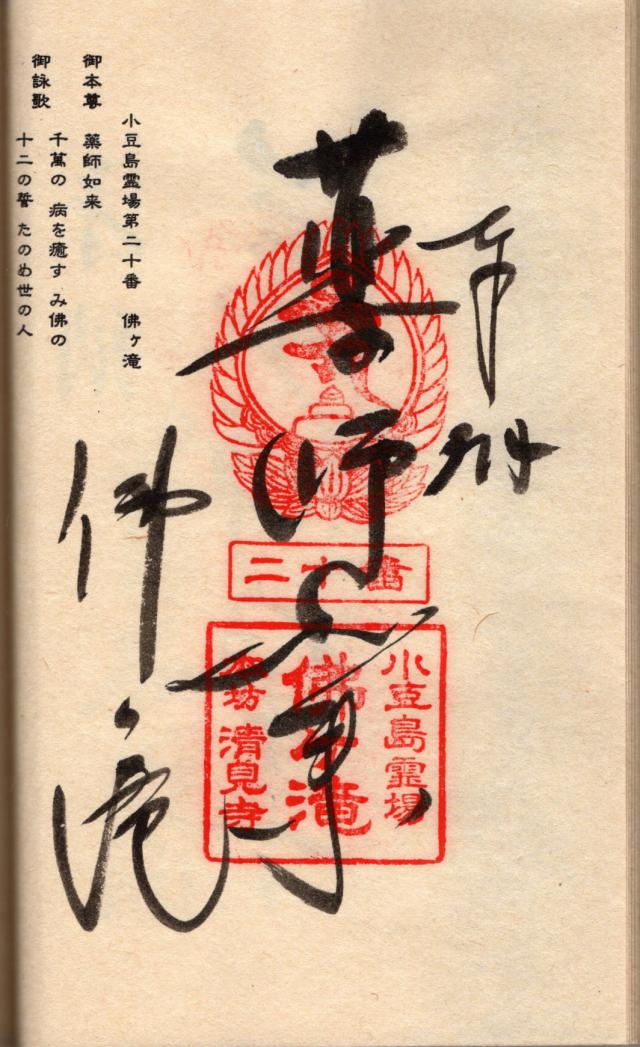 奉拝
薬師如来
佛ヶ滝
二十番
小豆島霊場
佛ヶ滝
本坊 清見寺
小豆島霊場第二十番 佛ヶ滝
御本尊 薬師如来
御詠歌 千萬の 病を癒す み佛の
十二の誓 たのめ世の人